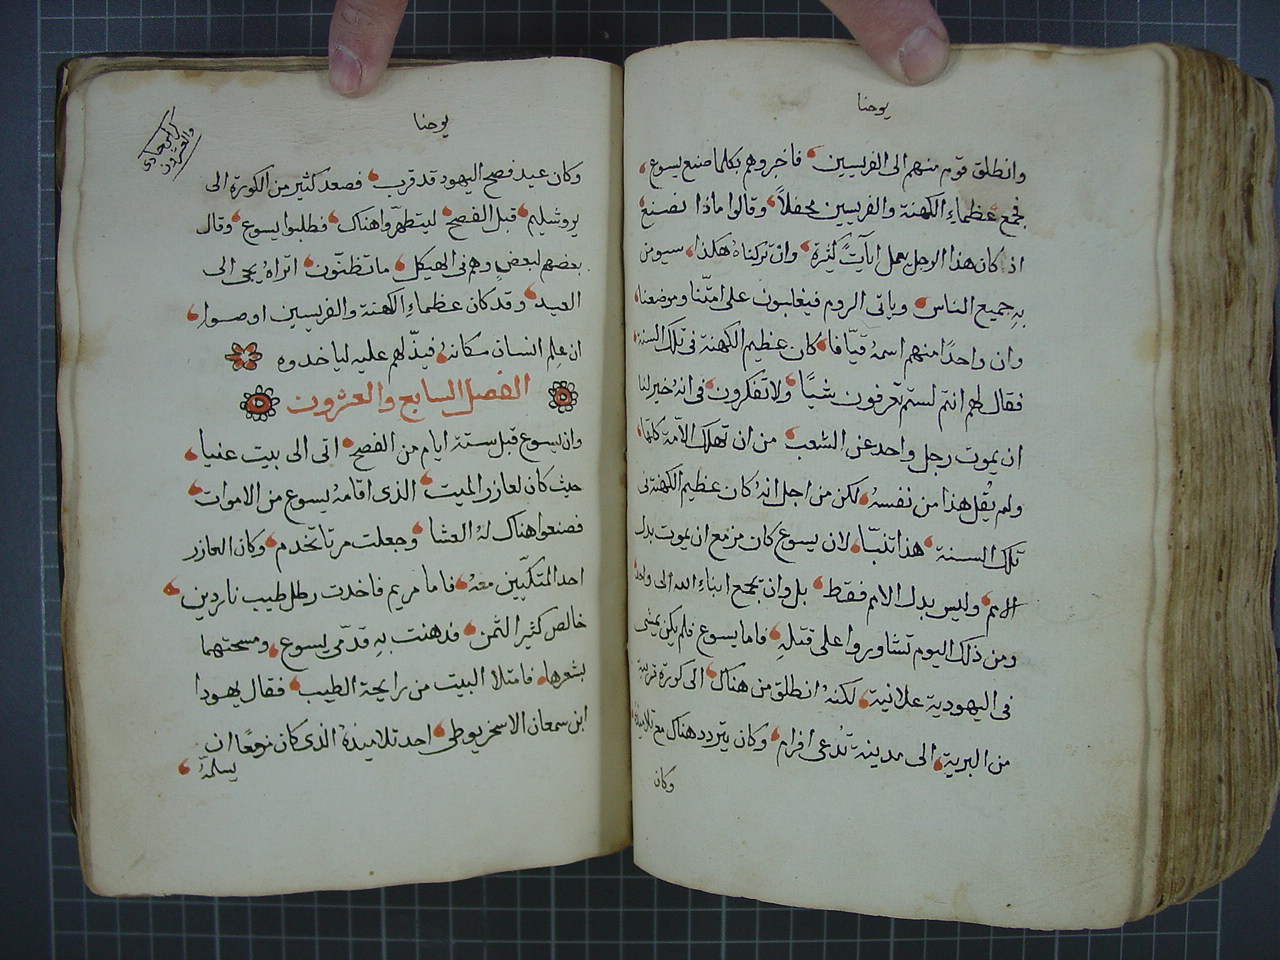 يوحنا
وانطلق قوم منهم الى الفريسيين فاخبروهم بكلما صنع يسوع
فجمع عظماء الكهنة والفريسيين محفلاً وقالوا ماذا نصنع
اذ كان هذا الرجل يعمل ايات كثيرة وان تركناه هكذا سيومن
به جميع الناس وياتى الروم فيغلبون على امتنا وموضعنا
وان واحدًا منهم اسمه قيافا كان عظيم الكهنة فى تلك السنة
فقال لهم انتم لستم تعرفون شيًا ولا تفكرون فى انه خير لنا
ان يموت رجل واحد عن الشعب من ان تهلك الامة كلها
ولم يقل هذا من نفسه لكن من اجل انه كان عظيم الكهنة فى
تلك السنة هذا تنبا لان يسوع كان مزمع ان يموت بدل
الامم وليس بدل الامم فقط بل وان يجمع ابناء الله الى واحد
ومن ذلك اليوم تشاوروا على قتله فاما يسوع فلم يكن يمشى
فى اليهودية علانية لكنه انطلق من هناك الى كورة قريبة
من البرية الى مدينة تدعى افرام وكان يتردد هناك مع تلاميذه
وكان
يوحنا
والعشرون
وكان عيد فصح اليهود قد قرب فصعد كثير من الكورة الى
يروشليم قبل الفصح ليتطهروا هناك فطلبوا يسوع وقال
بعضهم لبعض وهم فى الهيكل ما تظنون اتراه يجى الى
العيد وقد كان عظماء الكهنة والفريسين اوصوا
ان علم انسان مكانه فيدلهم عليه لياخدوه
الفصل السابع والعشرون
وان يسوع قبل ستة ايام من الفصح اتى الى بيت عنيا
حيث كان لعازر الميت الذى اقامه يسوع من الاموات
فصنعوا هناك له العشا وجعلت مرتا تخدم وكان العازر
احد المتكيين معه فاما مريم فاخدت رطل طيب ناردين
خالص كثير الثمن فدهنت به قدمى يسوع ومسحتهما
بشعرها فامتلا البيت من رايحة الطيب فقال يهودا
ابن سمعان الاسخريوطى احد تلاميذه الذى كان مزمعًا ان
يسلمه